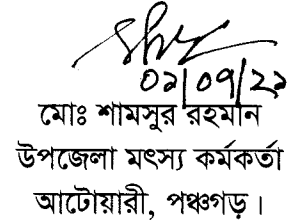 ০১/০৭/২১
মোঃ শামসুর রহমান
উপজেলা মৎস্য কর্মকর্তা
আটোয়ারী, পঞ্চগড়।